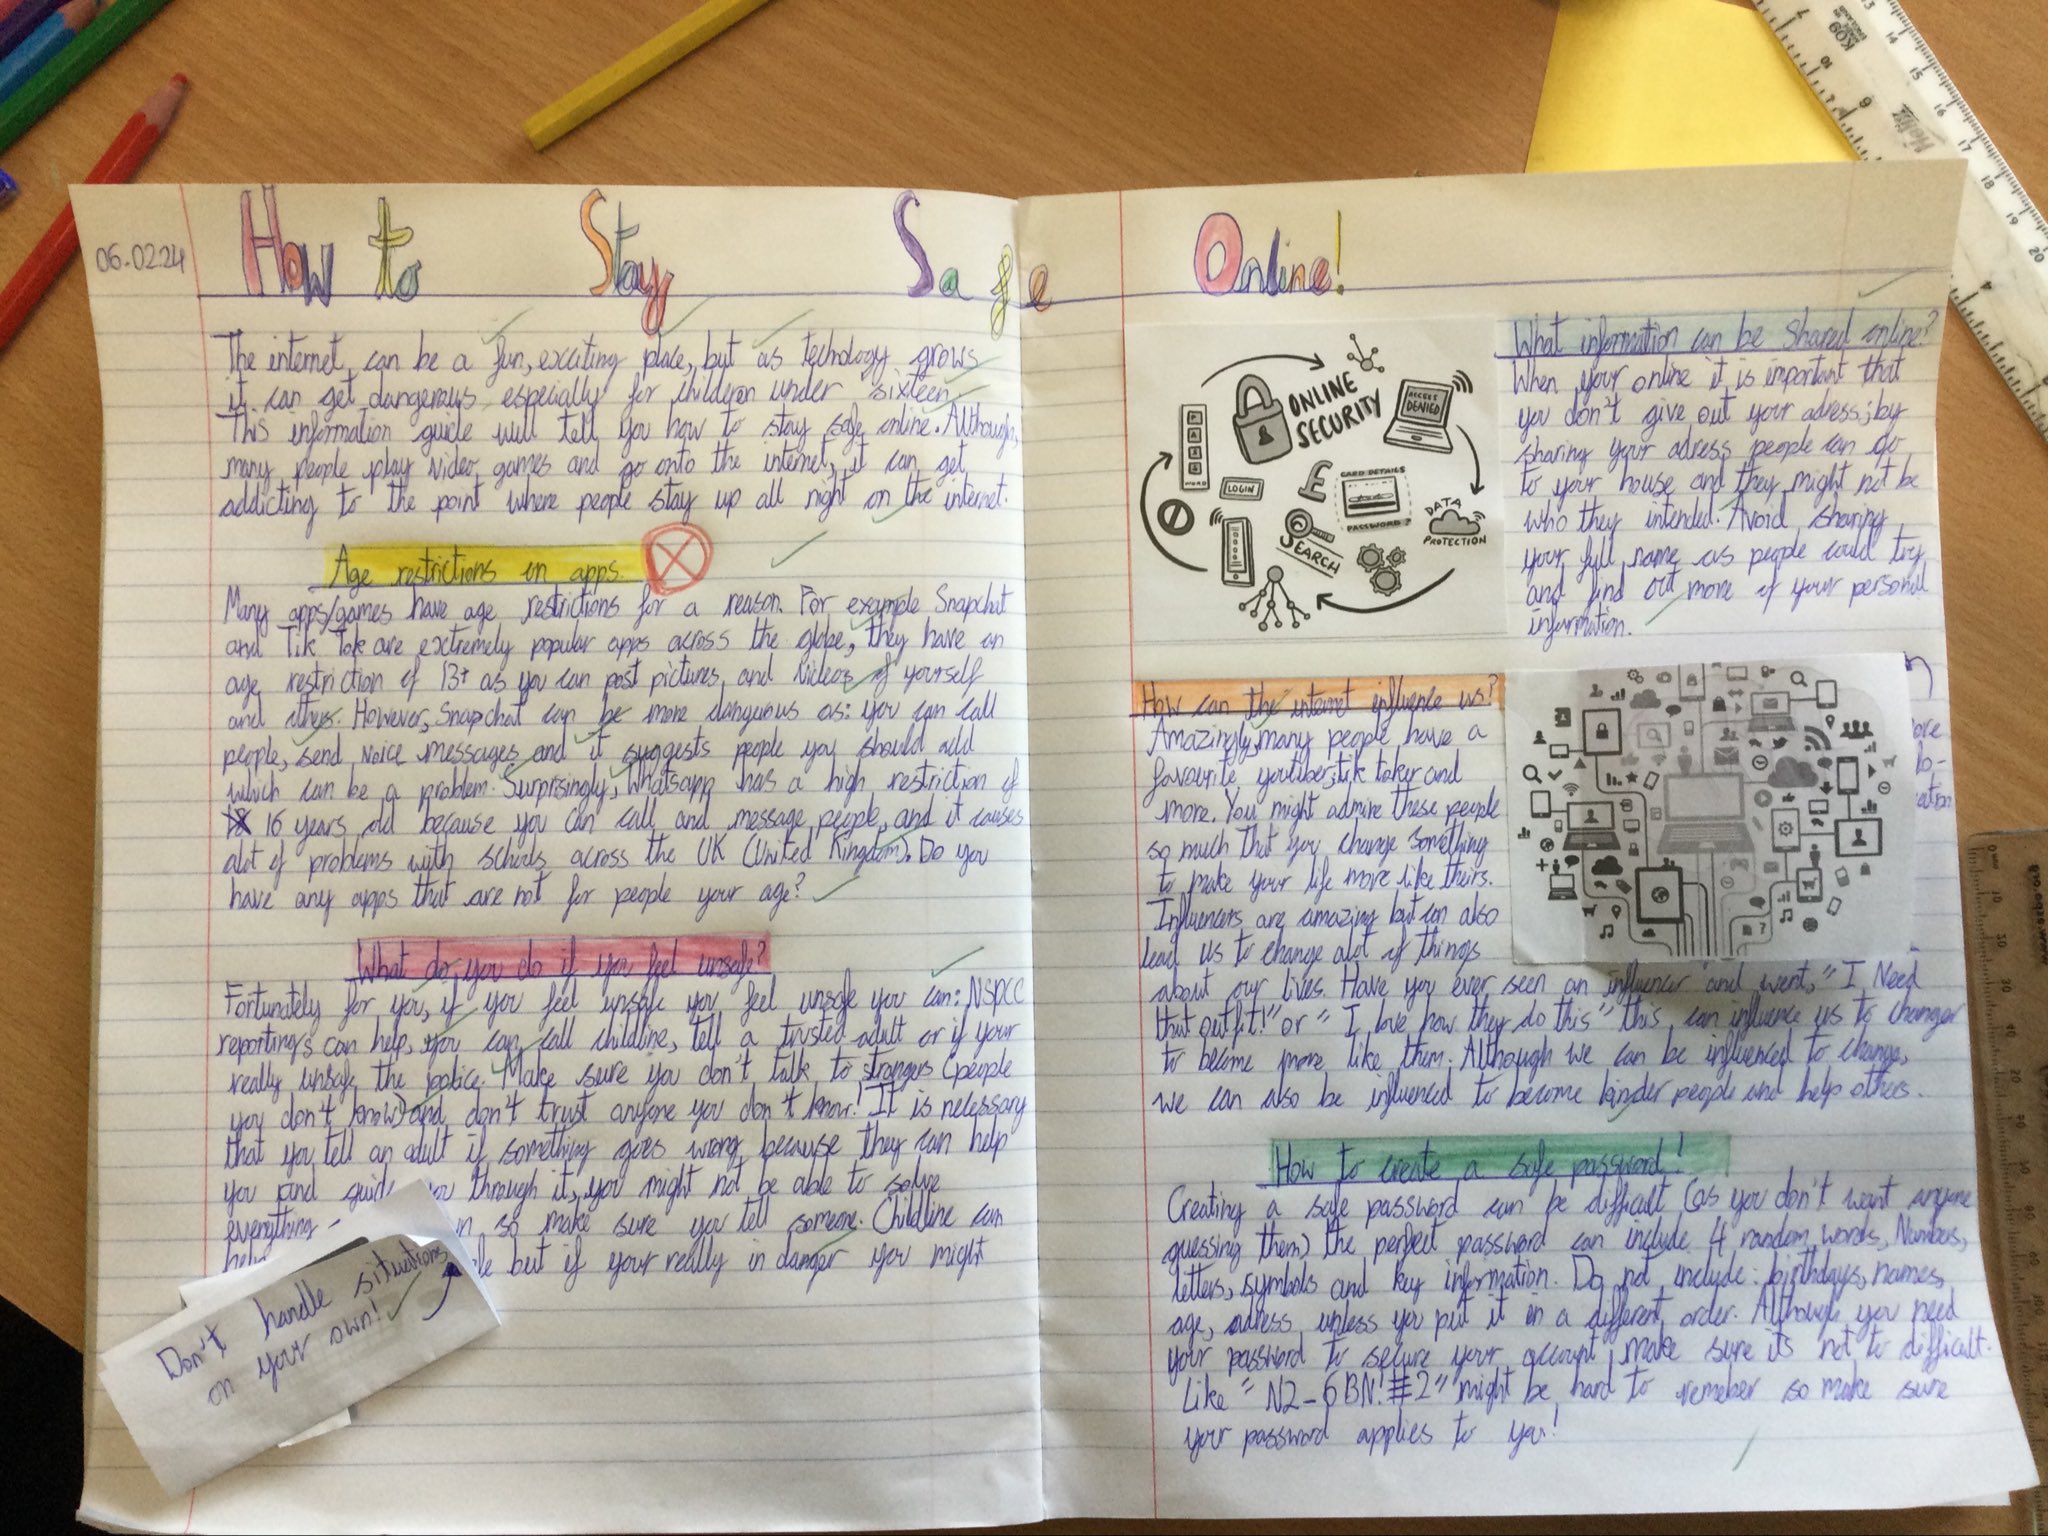 06.02.24
How to Stay Safe Online!
The internet can be a fun, exciting place, but as techology grows
it can get dangerous especially for children under sixteen.
This information guide will tell you how to stay safe online. Although,
many people play video games and go onto the internet, it can get
addicting to the point where people stay up all night on the internet.
Age restrictions on apps.
Many apps/games have age restrictions for a reason. For example Snapchat
and Tik Tok are extremely popular apps across the globe, they have an
age restriction of 13+ as you can post pictures and videos of yourself
and others. However, Snapchat can be more dangerous as: you can call
people, send voice messages and it suggests people you should add
which can be a problem. Surprisingly, Whatsapp has a high restriction of
16 years old because you can call and message people, and it causes
alot of problems with schools across the UK (United Kingdom). Do you
have any apps that are not for people your age?
What do you do if you feel unsafe?
Fortunately for you, if you feel unsafe you feel unsafe you can: NSPCC
reporting's can help, you can call childline, tell a trusted adult or if your
really unsafe the police. Make sure you don't talk to strangers (people
you don't know) and don't trust anyone you don't know! It is necessary
that you tell an adult if something goes wrong because they can help
you and guide you through it, you might not be able to solve
everything so make sure you tell someone. Childline can
help but if your really in danger you might
Don't handle situations
on your own!
ONLINE
SECURITY
ACCESS
DENIED
WORD
LOGIN
£
CARD DETAILS
PASSWORD?
DATA
PROTECTION
SEARCH
What information can be shared online?
When your online it is important that
you don't give out your adress; by
sharing your adress people can go
to your house and they might not be
who they intended. Avoid sharing
your full name as people could try
and find out more of your personal
information.
How can the internet influence us?
Amazingly, many people have a
favourite youtuber, tik toker and
more. You might admire these people
so much that you change something
to make your life more like theirs.
Influencers are amazing but can also
lead us to change alot of things
about our lives. Have you ever seen an influencer and went, "I Need
that outfit!" or "I love how they do this" this can influence us to change
to become more like them. Although we can be influenced to change,
we can also be influenced to become kinder people and help others.
How to create a safe password!
Creating a safe password can be difficult (as you don't want anyone
guessing them) the perfect password can include 4 random words, Numbers,
letters, symbols and key information. Do not include: birthdays, names,
age, adress unless you put it in a different order. Although you need
your password to secure your account, make sure its not to difficult.
Like "N2-6BN!#2" might be hard to remeber so make sure
your password applies to you!